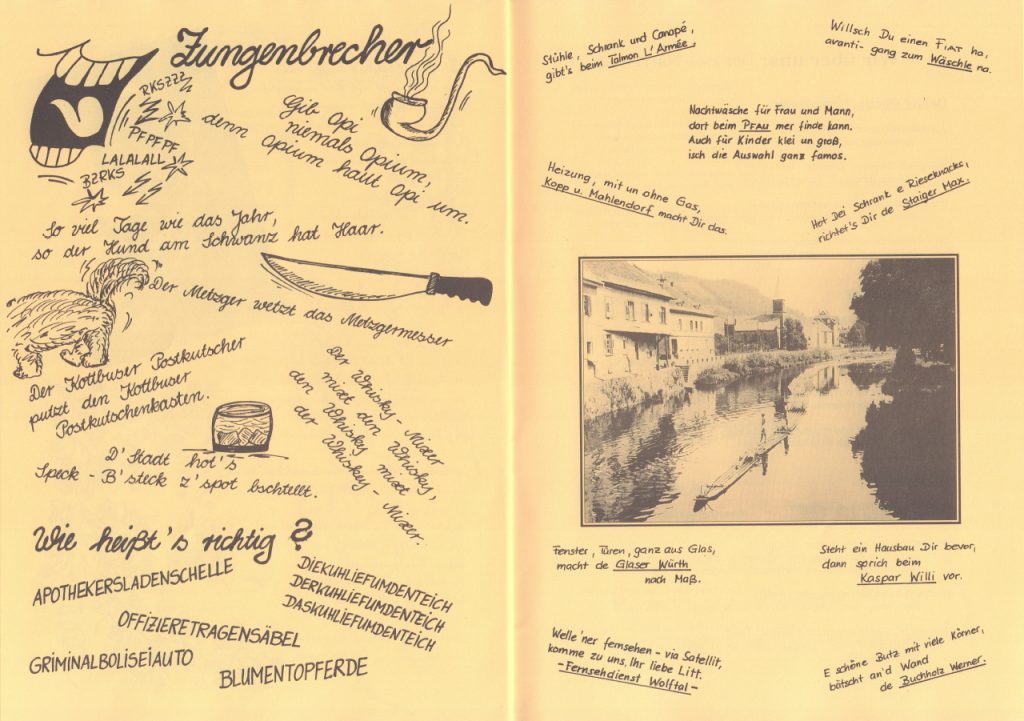 Zungenbrecher
RKSZZZ
PFPFPF
LALALALL
BZRKS
Gib Opi
niemals Opium,
denn Opium haut Opi um.
So viel Tage wie das Jahr,
so der Hund am Schwanz hat Haar.
Der Metzger wetzt das Metzgermesser
Der Kottbuser Postkutscher
putzt den Kottbuser
Postkutschenkasten.
Der Whisky-Mixer
mixt den Whisky,
den Whisky mixt
der Whiskey-Mixer.
D'Stadt hot's
Speck-B'steck z'spot bschtellt.
Wie heißt's richtig?
APOTHEKERSLADENSCHELLE
DIEKUHLIEFUMDENTEICH
DERKUHLIEFUMDENTEICH
DASKUHLIEFUMDENTEICH
OFFIZIERETRAGENSÄBEL
GRIMINALBOLISEIAUTO
BLUMENTOPFERDE
Stühle, Schrank und Canapé,
gibt's beim Talmon L'Armée.
Willsch Du einen FIAT ha,
avanti- gang zum Wäschle na.
Nachtwäsche für Frau und Mann,
dort beim PFAU mer finde kann.
Auch für Kinder klei un groß,
isch die Auswahl ganz famos.
Heizung, mit un ohne Gas,
Kopp u. Mahlendorf macht Dir das.
Hot Dei Schrank e Rieseknacks,
richtet's Dir de Staiger Max.
Fenster, Türen, ganz aus Glas,
macht de Glaser Würth
nach Maß.
Steht ein Hausbau Dir bevor,
dann sprich beim
Kaspar Willi vor.
Welle 'ner fernsehen - via Satellit,
komme zu uns, Ihr liebe Litt.
-Fernsehdienst Wolftal-
E schöne Butz mit viele Körner,
bätscht an'd Wand
de Buchholz Werner.